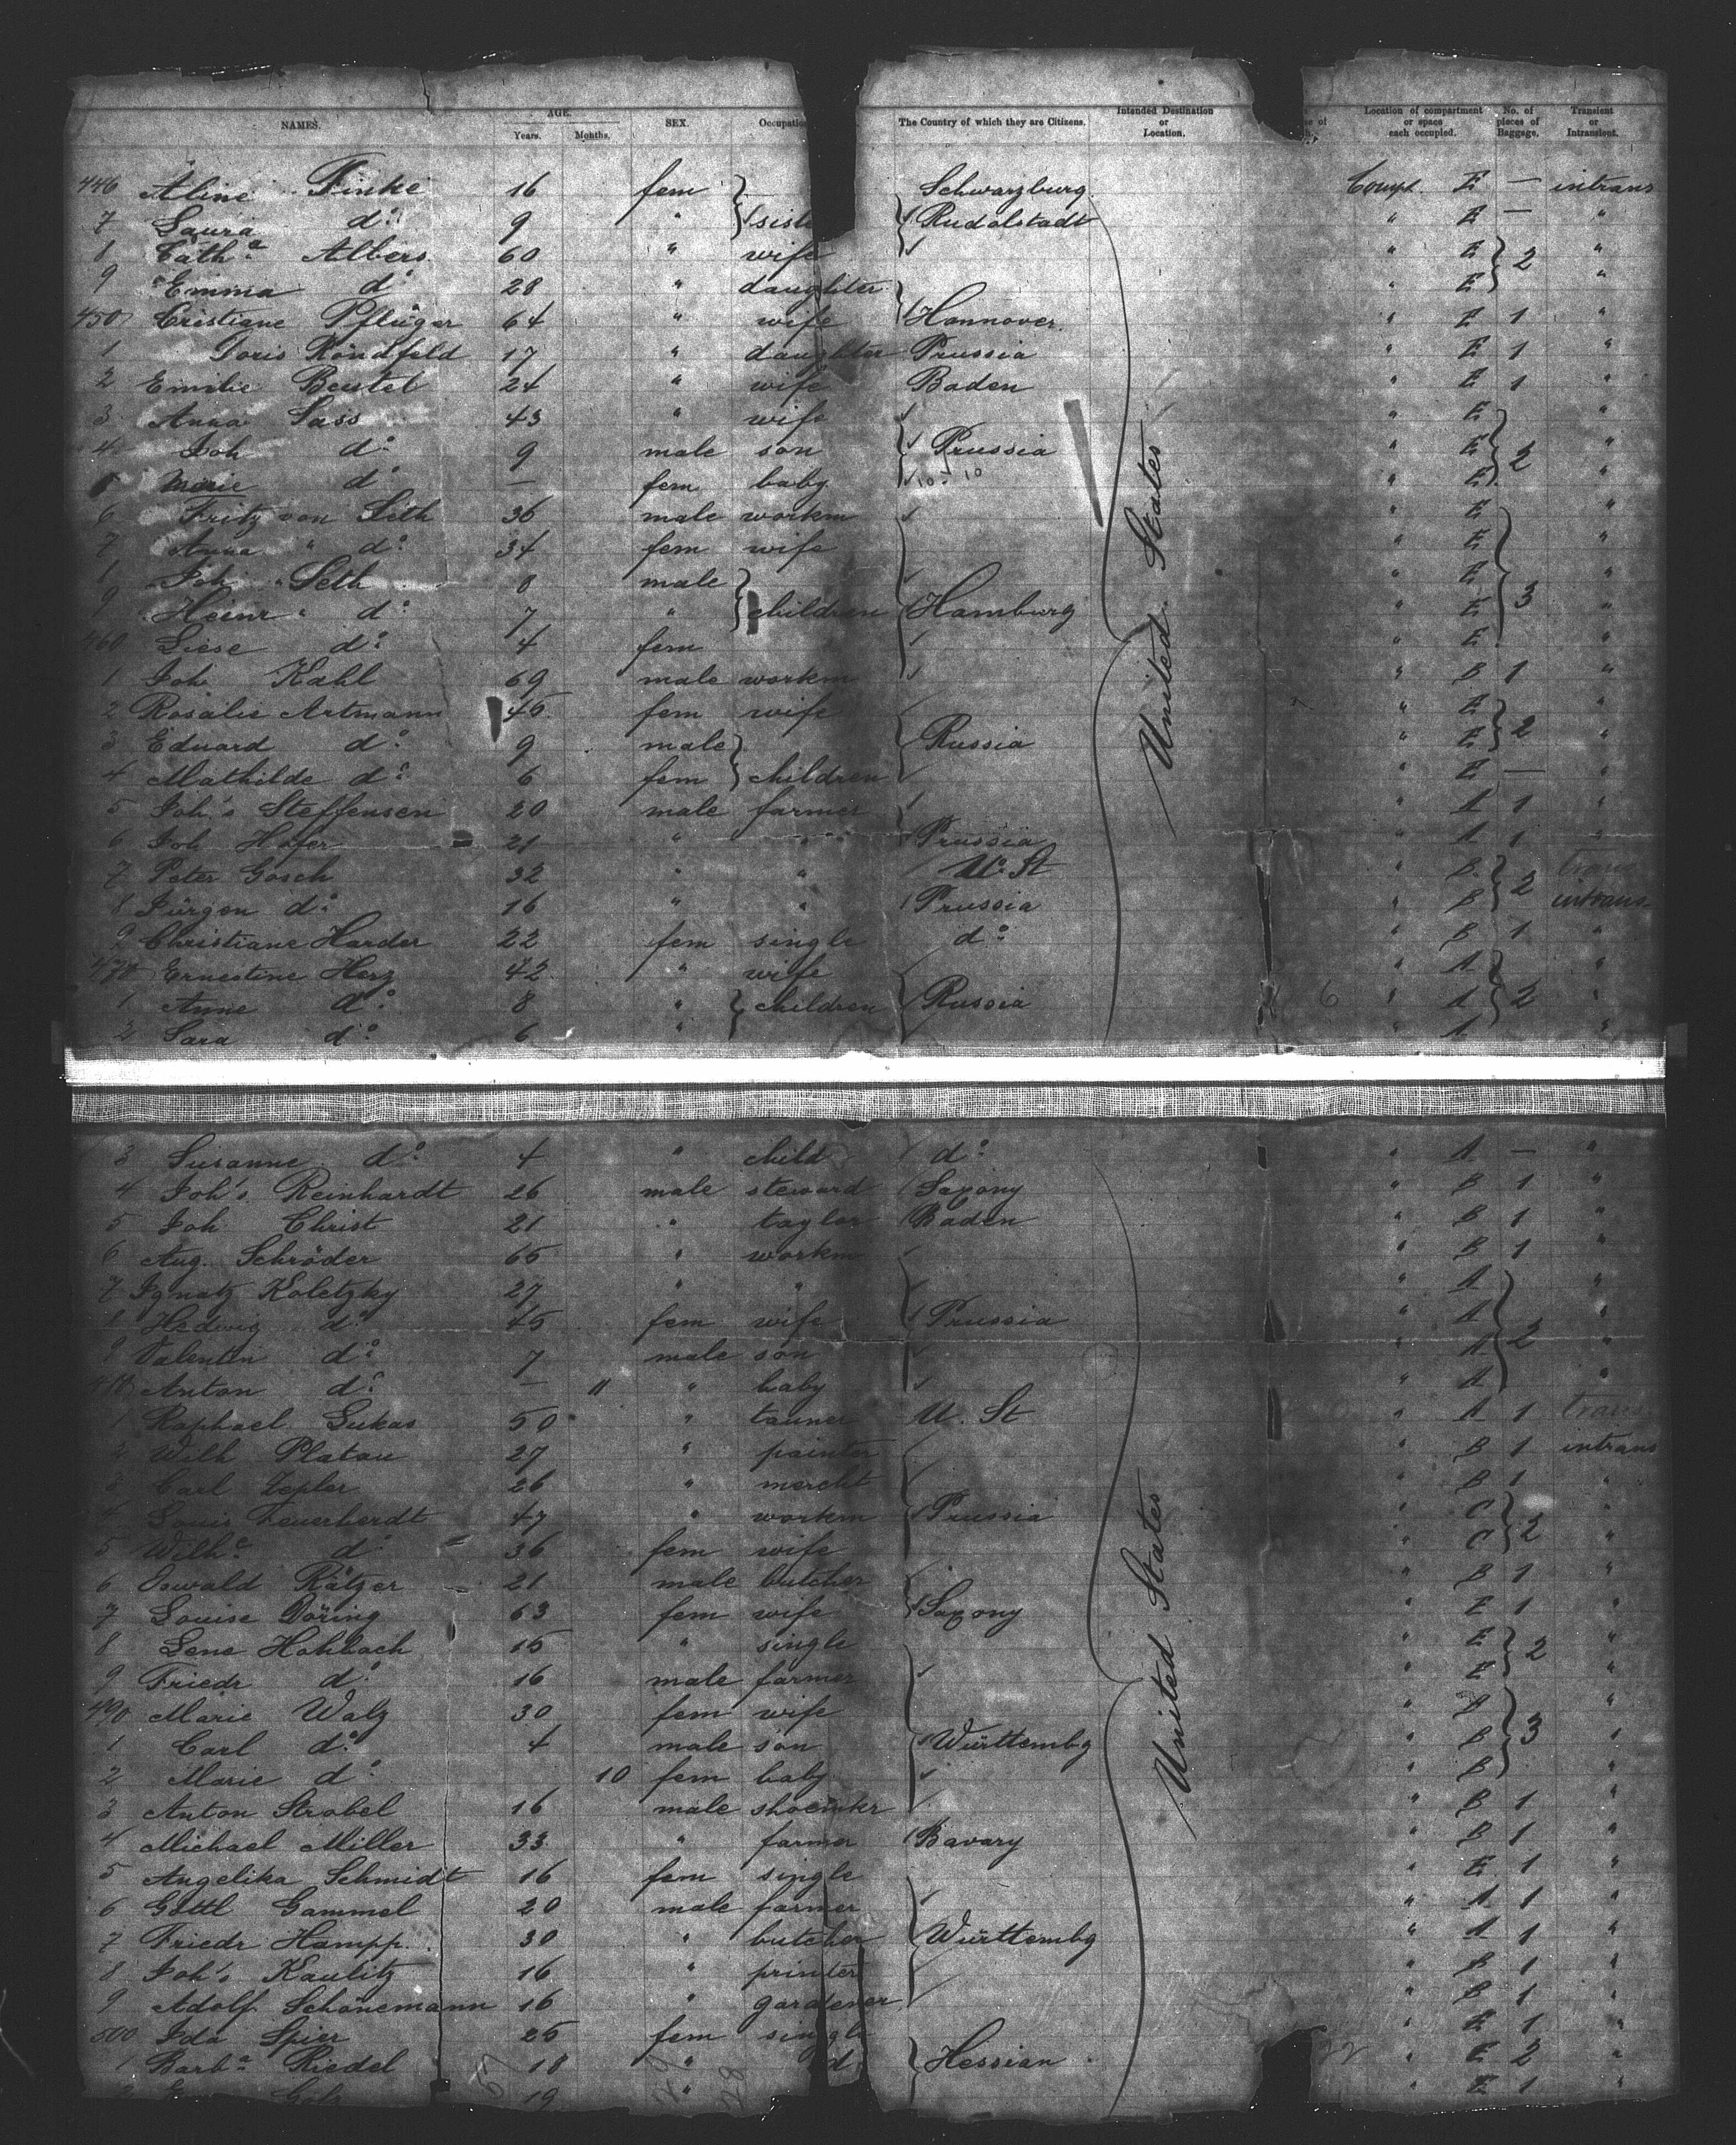 NAMES. AGE. Years. Months. SEX. Occupation The Country of which they are Citizens. Intended Destination or Location. Location of compartment or space each occupied. No. of pieces of Baggage. Transient or Intransient.
446 Aline Finke 16 fem Schwarzburg Compt. E — intrans
7 Laura do 9 " sist Rudolstadt " E — "
8 Catha Albers 60 " wife " E "
9 Emma do 28 " daughter " E 2 "
450 Cristiane Pflüger 64 " wife Hannover. " E 1 "
1 Doris Röndfeld 17 " daughter Prussia " E 1 "
2 Emilie Beutel 24 " wife Baden " E 1 "
3 Anna Sass 43 " wife " E "
4 Joh do 9 male son Prussia " E 2 "
5 Marie do — fem baby " E "
6 Fritz von Seth 36 male workm " E "
7 Anna " do 34 fem wife " E "
8 Joh " Seth 8 male " E "
9 Heinr " do 7 " children Hamburg " E 3 "
460 Liese do 4 fem " E "
1 Joh Kahl 69 male workm " B 1 "
2 Rosalie Artmann 45 fem wife " E "
3 Eduard do 9 male Russia " E 2 "
4 Mathilde do 6 fem children " E — "
5 Joh's Steffensen 20 male farmer " A 1 "
6 Joh Hofer 21 " " Prussia " A 1 "
7 Peter Gosch 32 " " U. St " B trans
8 Jürgen do 16 " " Prussia " B 2 intrans.
9 Christiane Harder 22 fem single do " B 1 "
470 Ernestine Herz 42 " wife " A "
1 Anne do 8 " children Russia 6 " A 2 "
2 Sara do 6 " " A "
United States
3 Susanne do 4 " child do " A — "
4 Joh's Reinhardt 26 male steward Saxony " B 1 "
5 Joh Christ 21 " taylor Baden " B 1 "
6 Aug. Schröder 65 " workm " B 1 "
7 Ignatz Koletzky 27 " " " A "
8 Hedwig do 45 fem wife Prussia " A "
9 Valentin do 7 male son " A 2 "
480 Anton do — 11 " baby " A "
1 Raphael Lukas 50 " tanner U. St " A 1 trans
2 Wilh Platau 27 " painter " B 1 intrans
3 Carl Zepler 26 " mercht " B 1 "
4 Louis Feuerherdt 47 " workm Prussia " C "
5 Wilhe do 36 fem wife " C 2 "
6 Oswald Rätzer 21 male butcher " B 1 "
7 Louise Döring 63 fem wife Saxony " E 1 "
8 Lene Hohbach 15 " single " E 2 "
9 Friedr do 16 male farmer " E "
490 Marie Walz 30 fem wife " B "
1 Carl do 4 male son Württembg " B 3 "
2 Marie do 10 fem baby " B "
3 Anton Strobel 16 male shoemkr " B 1 "
4 Michael Miller 33 " farmer Bavary " B 1 "
5 Angelika Schmidt 16 fem single " E 1 "
6 Gottl Gammel 20 male farmer " A 1 "
7 Friedr Hampp. 30 " butcher Württembg " A 1 "
8 Joh's Kaulitz 16 " printer " B 1 "
9 Adolf Schönemann 16 " gardener " B 1 "
500 Ida Spier 25 fem single " E 1 "
1 Barba Riedel 18 " d Hessian " E 2 "
19 " " E 1 "
United States